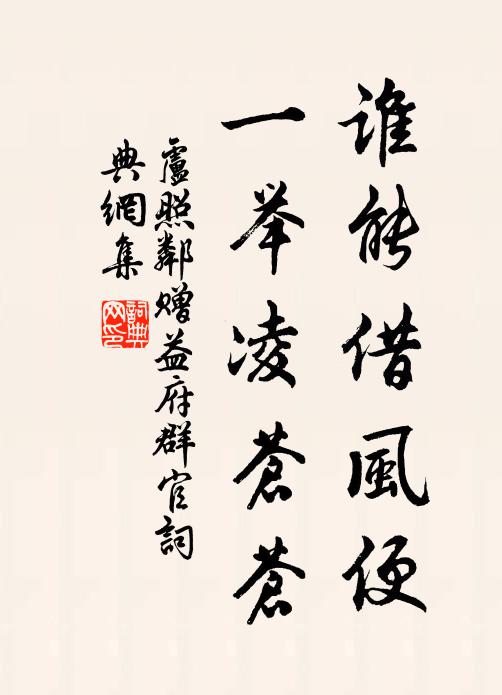 誰能借風便
一举凌蒼蒼
盧照鄰贈益府群官詞
典網集
詞典網印